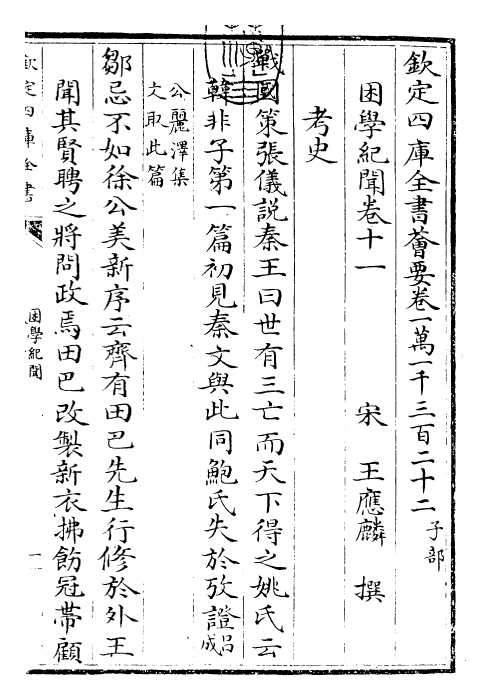 欽定四庫全書薈要卷一萬一千三百二十二子部
困學紀聞卷十一 宋 王應麟 撰
考史
戰國策張儀說秦王曰世有三亡而天下得之姚氏云
韓非子第一篇初見秦文與此同鮑氏失於攷證呂成
公麗澤集
文取此篇
鄒忌不如徐公美新序云齊有田巴先生行修於外王
聞其賢聘之將問政焉田巴改製新衣拂飭冠帶顧
欽定四庫全書
困學紀聞
一